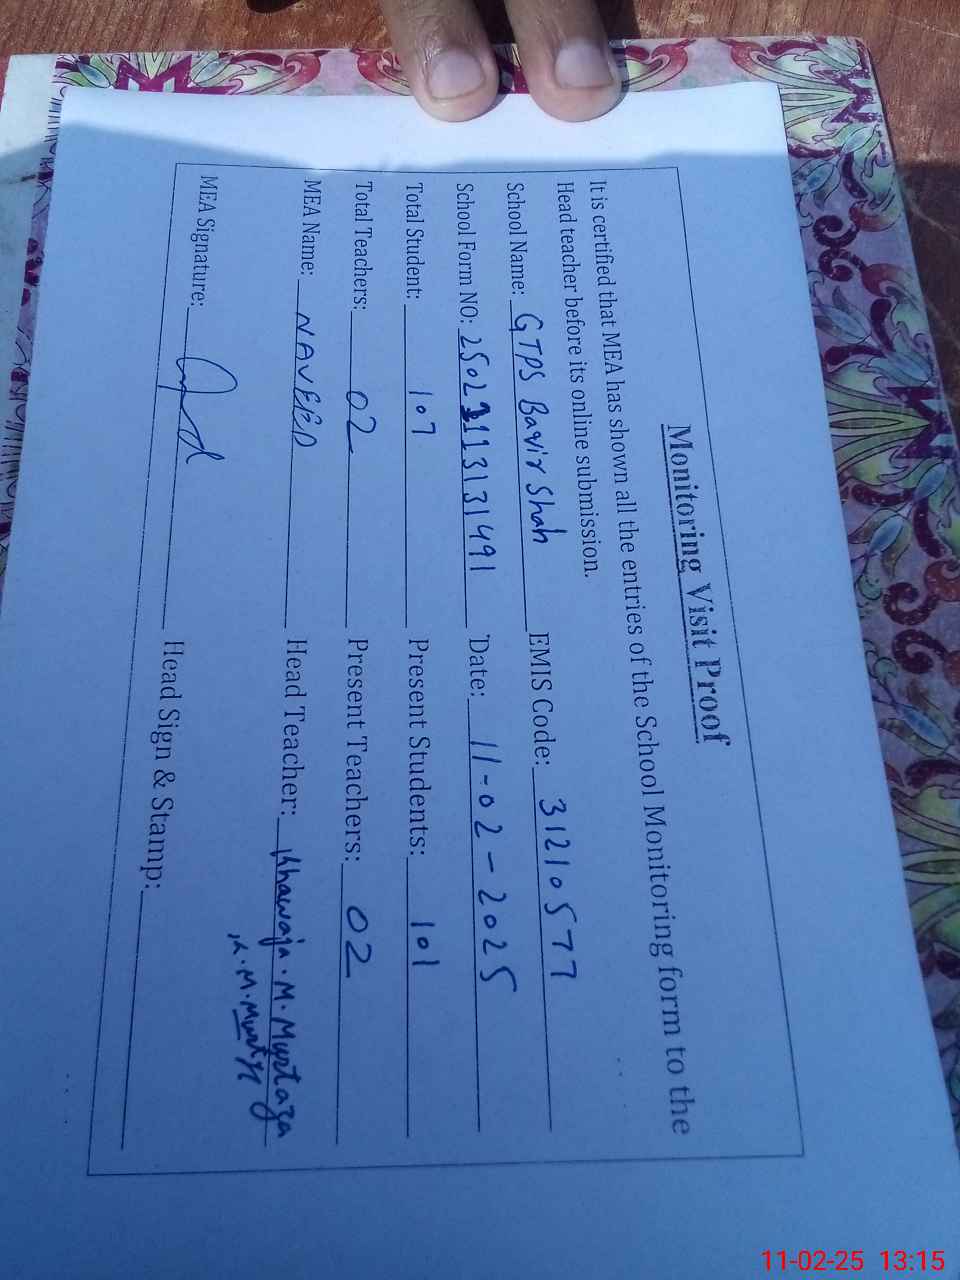 Monitoring Visit Proof
It is certified that MEA has shown all the entries of the School Monitoring form to the
Head teacher before its online submission.
School Name: GTPS Baqir Shah EMIS Code: 31210577
School Form NO: 2502 1131 31491 Date: 11-02-2025
Total Student: 107 Present Students: 101
Total Teachers: 02 Present Teachers: 02
MEA Name: NAVEED Head Teacher: Khawaja.M.Murtaza
MEA Signature: Head Sign & Stamp:
11-02-25 13:15